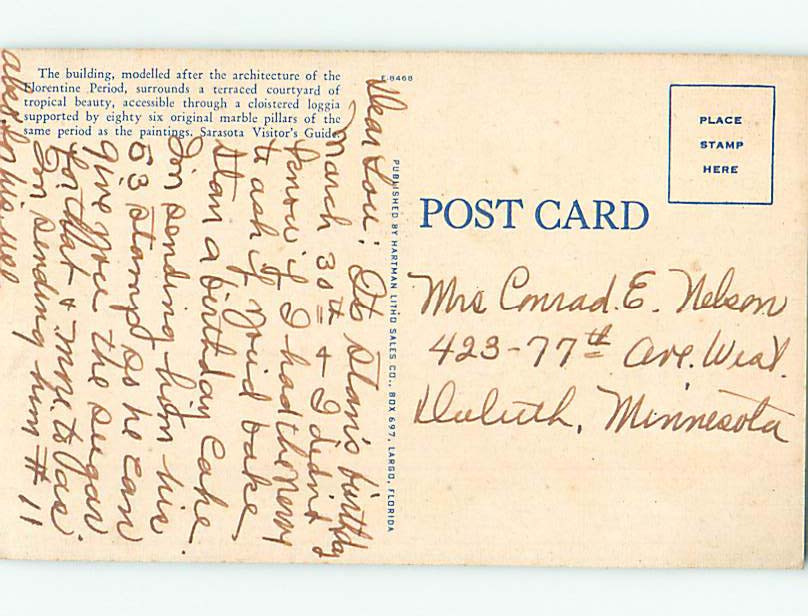 The building, modelled after the architecture of the
Florentine Period, surrounds a terraced courtyard of
tropical beauty, accessible through a cloistered loggia
supported by eighty six original marble pillars of the
same period as the paintings. Sarasota Visitor's Guide.
E-8468
PLACE
STAMP
HERE
POST CARD
PUBLISHED BY HARTMAN LITHO SALES CO., BOX 697, LARGO, FLORIDA
Dear Lou: Its Stan's birthday
March 30th & I didn't
know if I had the nerve
to ask if you'd bake
Stan a birthday cake
I'm sending him his
53 stamp so he can
give you the sugar
for that & mine to
I'm sending him # 11
also for his use
Mrs Conrad. E. Nelson
423-77th Ave. West.
Duluth, Minnesota